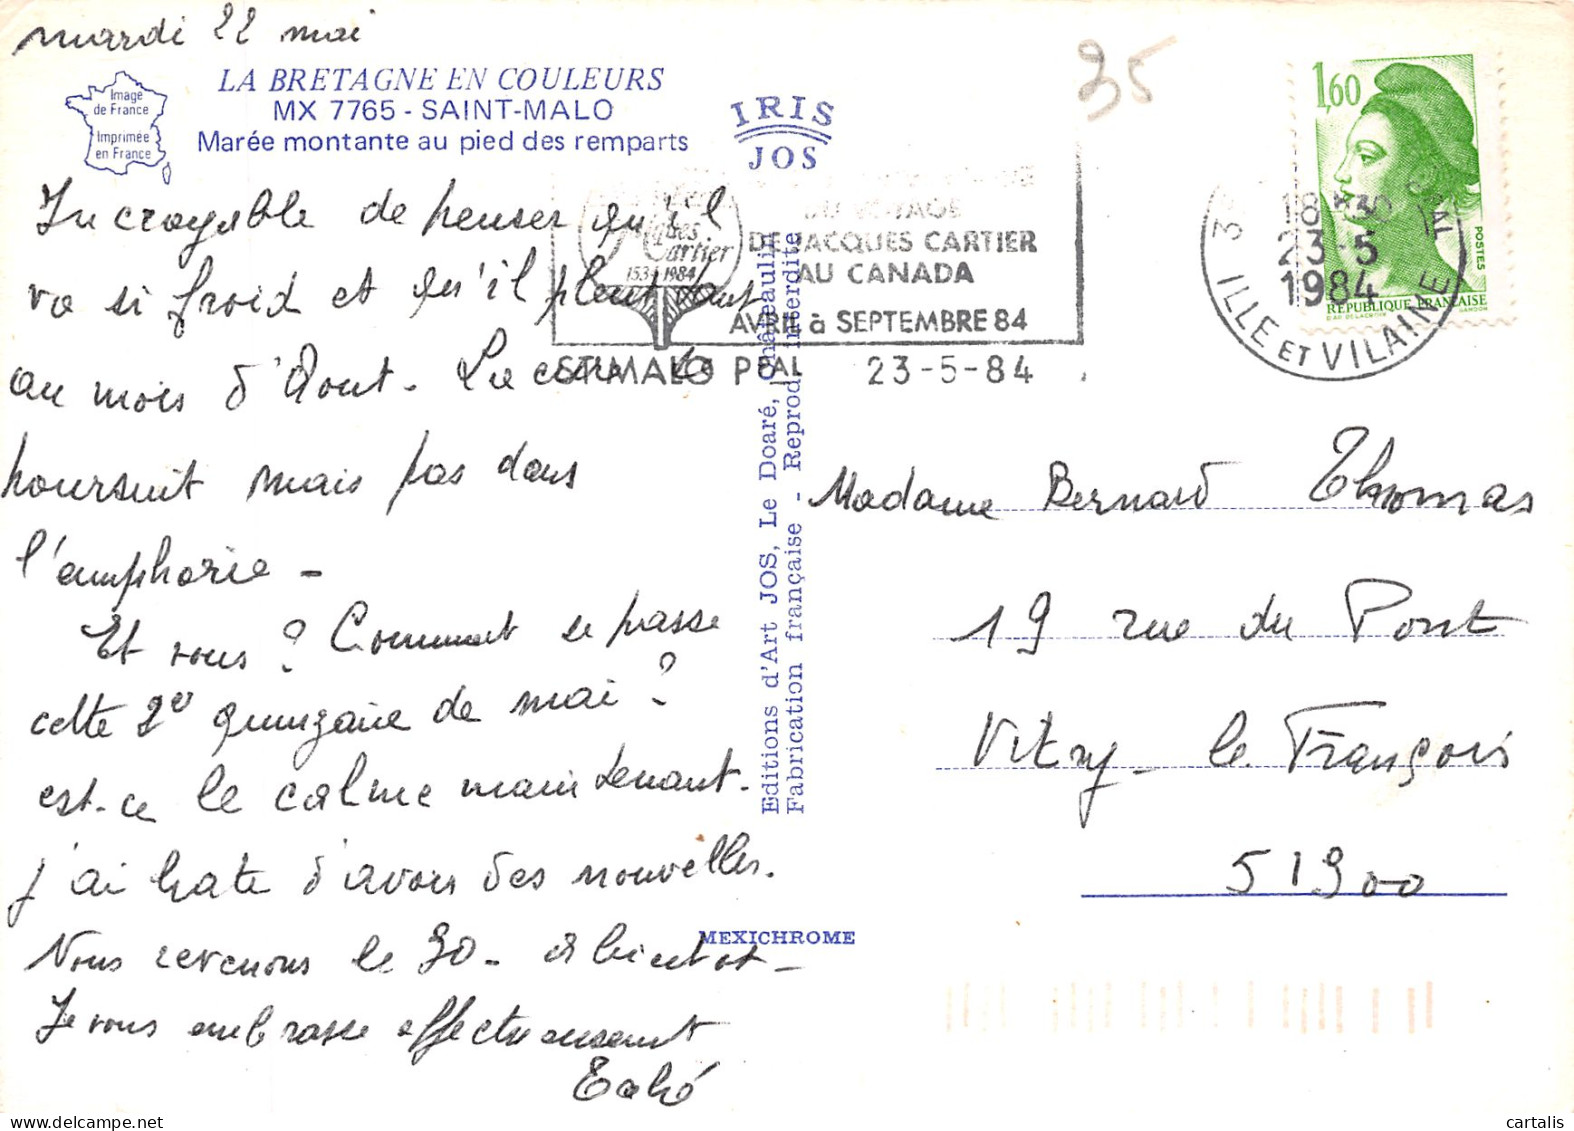 mardi 22 mai
Image
de France
Imprimée
en France
LA BRETAGNE EN COULEURS
MX 7765 - SAINT-MALO
Marée montante au pied des remparts
IRIS
JOS
Incroyable de penser qu'il
va si froid et qu'il pleut tant
au mois d'Aout. La cure se
poursuit mais pas dans
l'euphorie -
Et vous ? Comment se passe
cette 2e quinzaine de mai ?
est-ce le calme maintenant.
j'ai hate d'avoir des nouvelles.
Nous revenons le 30 - A bientot -
Je vous embrasse affectueusement
Jacques
Cartier
1534 1984
DU VOYAGE
DE JACQUES CARTIER
AU CANADA
AVRIL à SEPTEMBRE 84
ST MALO PPAL 23-5-84
Editions d'Art JOS, Le Doaré, Châteaulin
Fabrication française - Reprod. interdite
MEXICHROME
35
1,60
POSTES
REPUBLIQUE FRANÇAISE
GANDON
18 H30
23-5
1984
ILLE ET VILAINE
Madame Bernard Thomas
19 rue du Pont
Vitry-le François
51300
cartalis